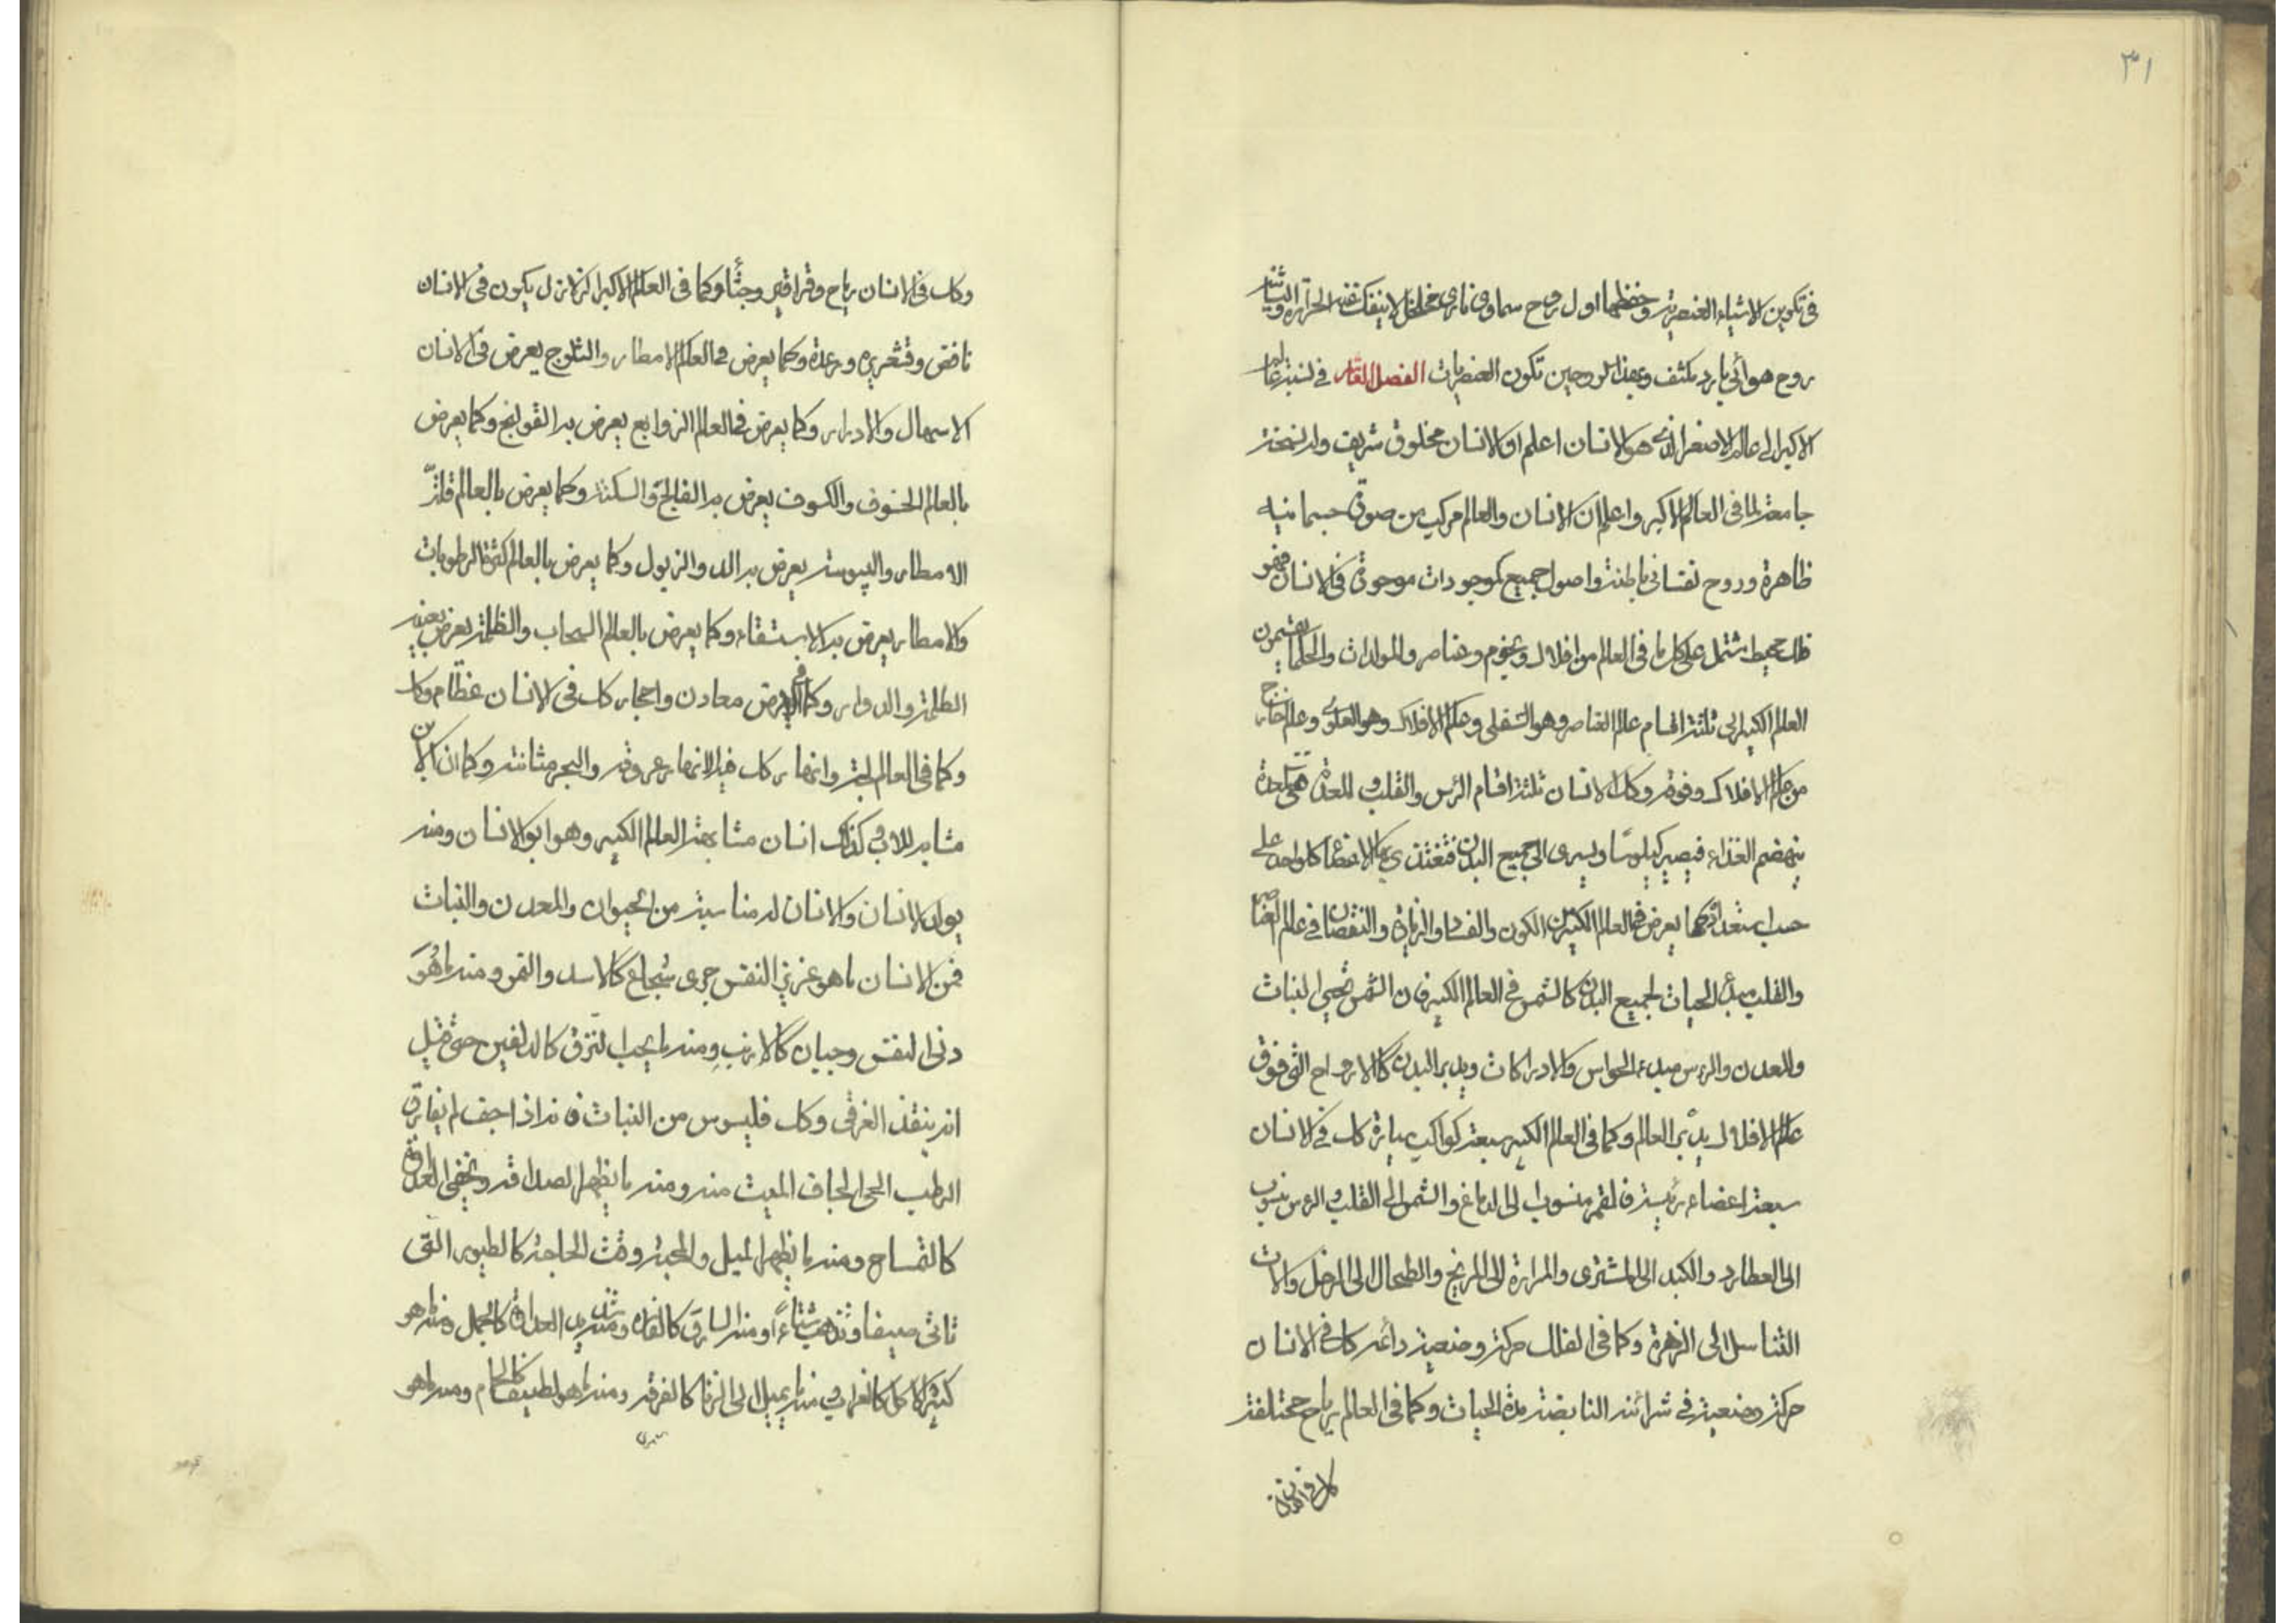 ٣١
في تكوين الاشياء العنصرية وحفظها اول روح سماوي ناري مخلخل لا ينفك عنه الحرارة والثاني
روح هوائي بارد مكثف وبهذا الروحين تكون العنصريات الفصل القا في نسبة عالم
الاكبر الى عالم الاصغر الذي هو الانسان اعلم ان الانسان مخلوق شريف وله نسخة
جامعة لما في العالم الاكبر واعلم ان الانسان والعالم مركب من صورة جسمانيه
ظاهرة وروح نفساني باطنة واصول جميع الموجودات موجودة في الانسان فهو
فلك محيط مشتمل على كل ما في العالم من افلاك ونجوم وعناصر والمولدات والحكما يقسمون
العلم الكبير الى ثلثة اقسام علم العناصر وهو السفلى وعلم الافلاك وهو العلوى وعلم خارج
من علم الافلاك وفوقه وكك الانسان ثلثة اقسام الرئس والقلب والمعدة هي معدة
ينهضم الغذاء فيصير كيلوسًا ويسرى الى جميع البدن فتغتذي بها الاعضا كل واحد على
حسب استعداده كما يعرض في العالم الكبير من الكون والفساد والزيادة والنقصان في عالم العناصر
والقلب مبدأ الحيات لجميع البدن كالشمس في العالم الكبير فان الشمس تحيي النبات
والمعدن والرئس مبدء الحواس والادراكات ويدبر البدن كالارواح التي فوق
علم الافلاك يدبّر العالم وكما في العالم الكبير سبعة كواكب سيارة كك في الانسان
سبعة اعضاء رئيسة فالقمر منسوب الى الدماغ والشمس الى القلب والرئس منسوب
الى العطارد والكبد الى المشترى والمرارة الى المريخ والطحال الى الزحل والات
التناسل الى الزهرة وكما في الفلك حركة وضعية دائمة كك في الانسان
حركة وضعية في شرائنه النابضة مدة الحيات وكما في العالم رياح مختلفة
كك في الانسان
وكك في الانسان رياح وقراقير وجشًأ وكما في العالم الاكبر الزلازل يكون في الانسان
نافض وقشعريره ورعدة وكما يعرض في العالم الامطار والثلوج يعرض في الانسان
الاسهال والادرار وكما يعرض في العالم الزوابع يعرض به القولنج وكما يعرض
بالعالم الخسوف والكسوف يعرض به الفالج والسكتة وكما يعرض بالعالم قلّة
الامطار واليبوسة يعرض به الدق والذبول وكما يعرض بالعالم كثرة الرطوبات
والامطار يعرض به الاستسقاء وكما يعرض بالعالم السحاب والظلمة يعرض بعينيه
الظلمة والدوار وكما في الارض معادن واحجار كك في الانسان عظام وكك
وكما في العالم لجة وانهار كك فيه الانهار عروقه والبحر مثانته وكما ان الابن
مشابه للاب وكذلك انسان مشابهة العالم الكبير وهو ابو الانسان ومنه
يولد الانسان والانسان له مناسبة من الحيوان والمعدن والنبات
فمن الانسان ما هو عزيز النفس جرى شجاع كالاسد والنمر ومنه ما هُوَ
دني النفس وجبان كالارنب ومنه ما يحب كالدلفين حتى قيل
انه ينقذ الغرقى وكك فليوس من النبات فانه اذا جف لم يفارق
الرطب الحي الجاف الميت منه ومنه ما يظهر الصداقة ويخفي العداوة
كالتمساح ومنه ما يظهر الميل والمحبة وقت الحاجة كالطيور التي
تاتى صيفا وتذهب شتاءً ومنه السارق كالفار ومنه شديد العداوة كالجمل ومنه ما هو
كثير الاكل كالغراب ومنه ما يميل الى الزنا كالقرد ومنه ما هو لطيف كالحمام ومنه ما هو